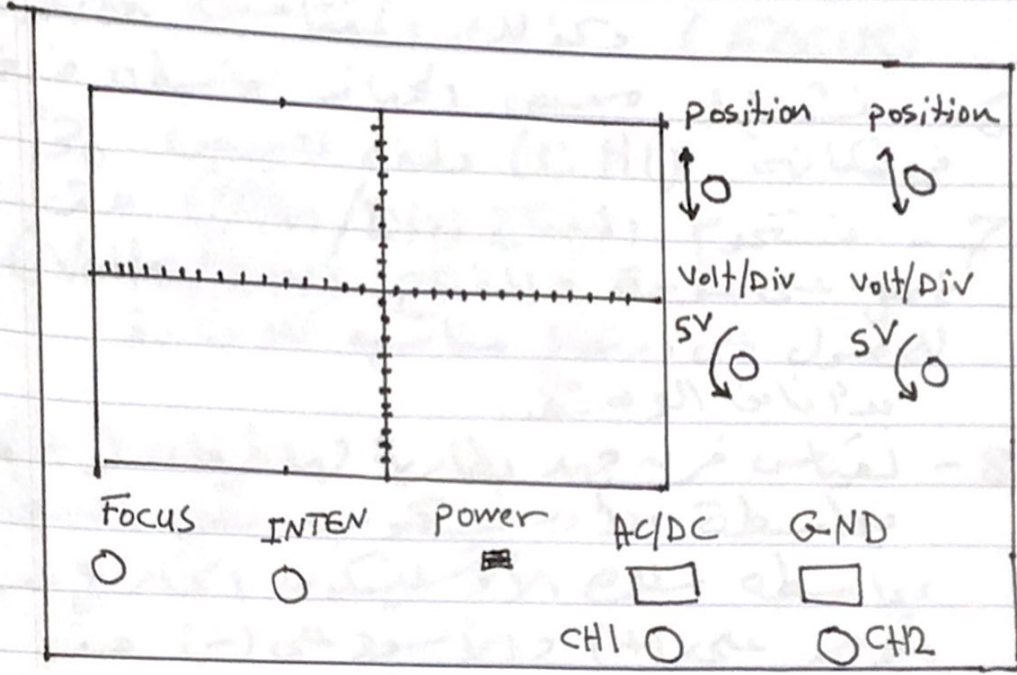 position position
Volt/Div Volt/Div
5V 5V
Focus INTEN Power AC/DC GND
CH1 CH2